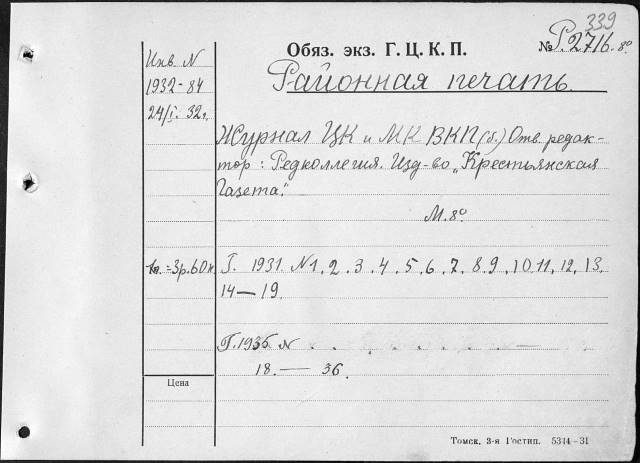 339
Обяз. экз. Г. Ц. К. П.
№ Р.2716. 8°
Районная печать.
Инв. N
1932-84
24/I. 32 г.
Журнал ЦК и МК ВКП(б.) Отв. редак-
тор: Редколлегия. Изд-во „Крестьянская
Газета."
М. 8°
3р.60к
Г. 1931. N 1, 2, 3, 4, 5, 6, 7, 8, 9, 10, 11, 12, 13,
14—19.
Г. 1935 N
18. — 36.
Цена
Томск, 3-я Гостип. 5344—31